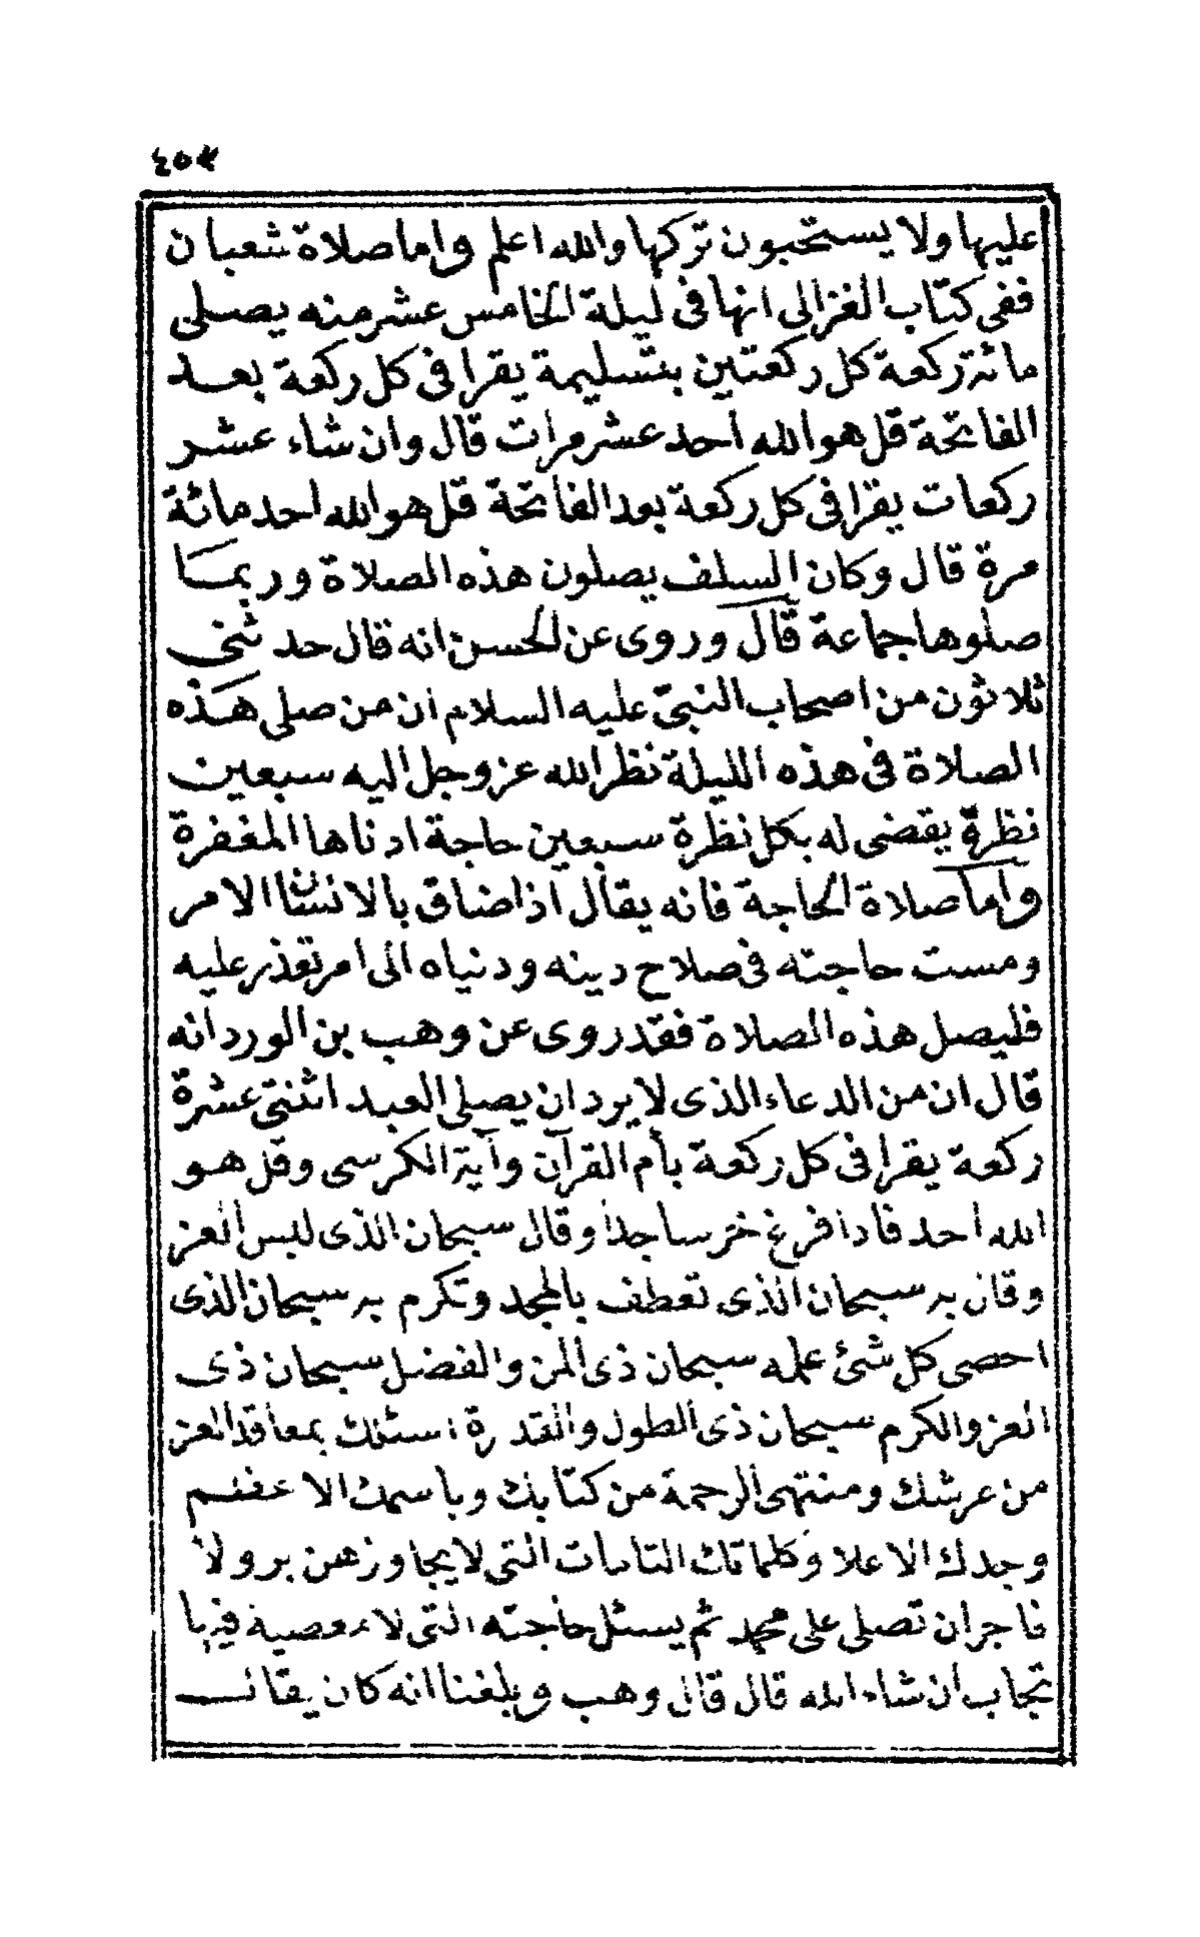 ٤٥٣
عليها ولا يستحبون تركها والله اعلم واما صلاة شعبان
ففي كتاب الغزالى انها فى ليلة الخامس عشر منه يصلى
مائة ركعة كل ركعتين بتسليمة يقرا فى كل ركعة بعد
الفاتحة قل هو الله احد عشر مرات قال وان شاء عشر
ركعات يقرا فى كل ركعة بعد الفاتحة قل هو الله احد مائة
مرة قال وكان السلف يصلون هذه الصلاة وربما
صلوها جماعة قال وروى عن الحسن انه قال حدثنى
ثلاثون من اصحاب النبىّ عليه السلام ان من صلى هذه
الصلاة فى هذه الليلة نظر الله عز وجل اليه سبعين
نظرة يقضى له بكل نظرة سبعين حاجة ادناها المغفرة
واما صلاة الحاجة فانه يقال اذا ضاق بالانسان الامر
ومست حاجته فى صلاح دينه ودنياه الى امر تعذر عليه
فليصل هذه الصلاة فقد روى عن وهب بن الورد انه
قال ان من الدعاء الذى لا يرد ان يصلى العبد اثنتى عشرة
ركعة يقرا فى كل ركعة بأم القرآن وآية الكرسى وقل هو
الله احد فاذا فرغ خر ساجدا وقال سبحان الذى لبس العز
وقال به سبحان الذى تعطف بالمجد وتكرم به سبحان الذى
احصى كل شئ علمه سبحان ذى المن والفضل سبحان ذى
العز والكرم سبحان ذى الطول والقدرة اسئلك بمعاقد العز
من عرشك ومنتهى الرحمة من كتابك وباسمك الاعظم
وجدك الاعلا وكلماتك التامات التى لا يجاوزهن بر ولا
فاجر ان تصلى على محمد ثم يسئل حاجته التى لا معصية فيها
تجاب ان شاء الله قال قال وهب وبلغنا انه كان يقال